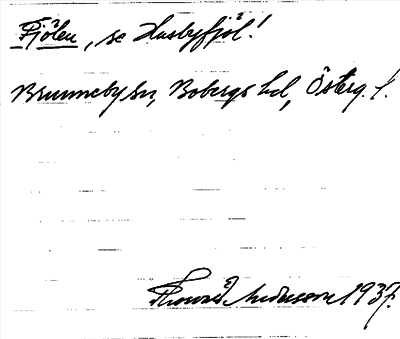 Fjölen, se Husbyfjöl!
Brunneby sn, Bobergs hd, Österg. l.
Thorsten Andersson 1937.